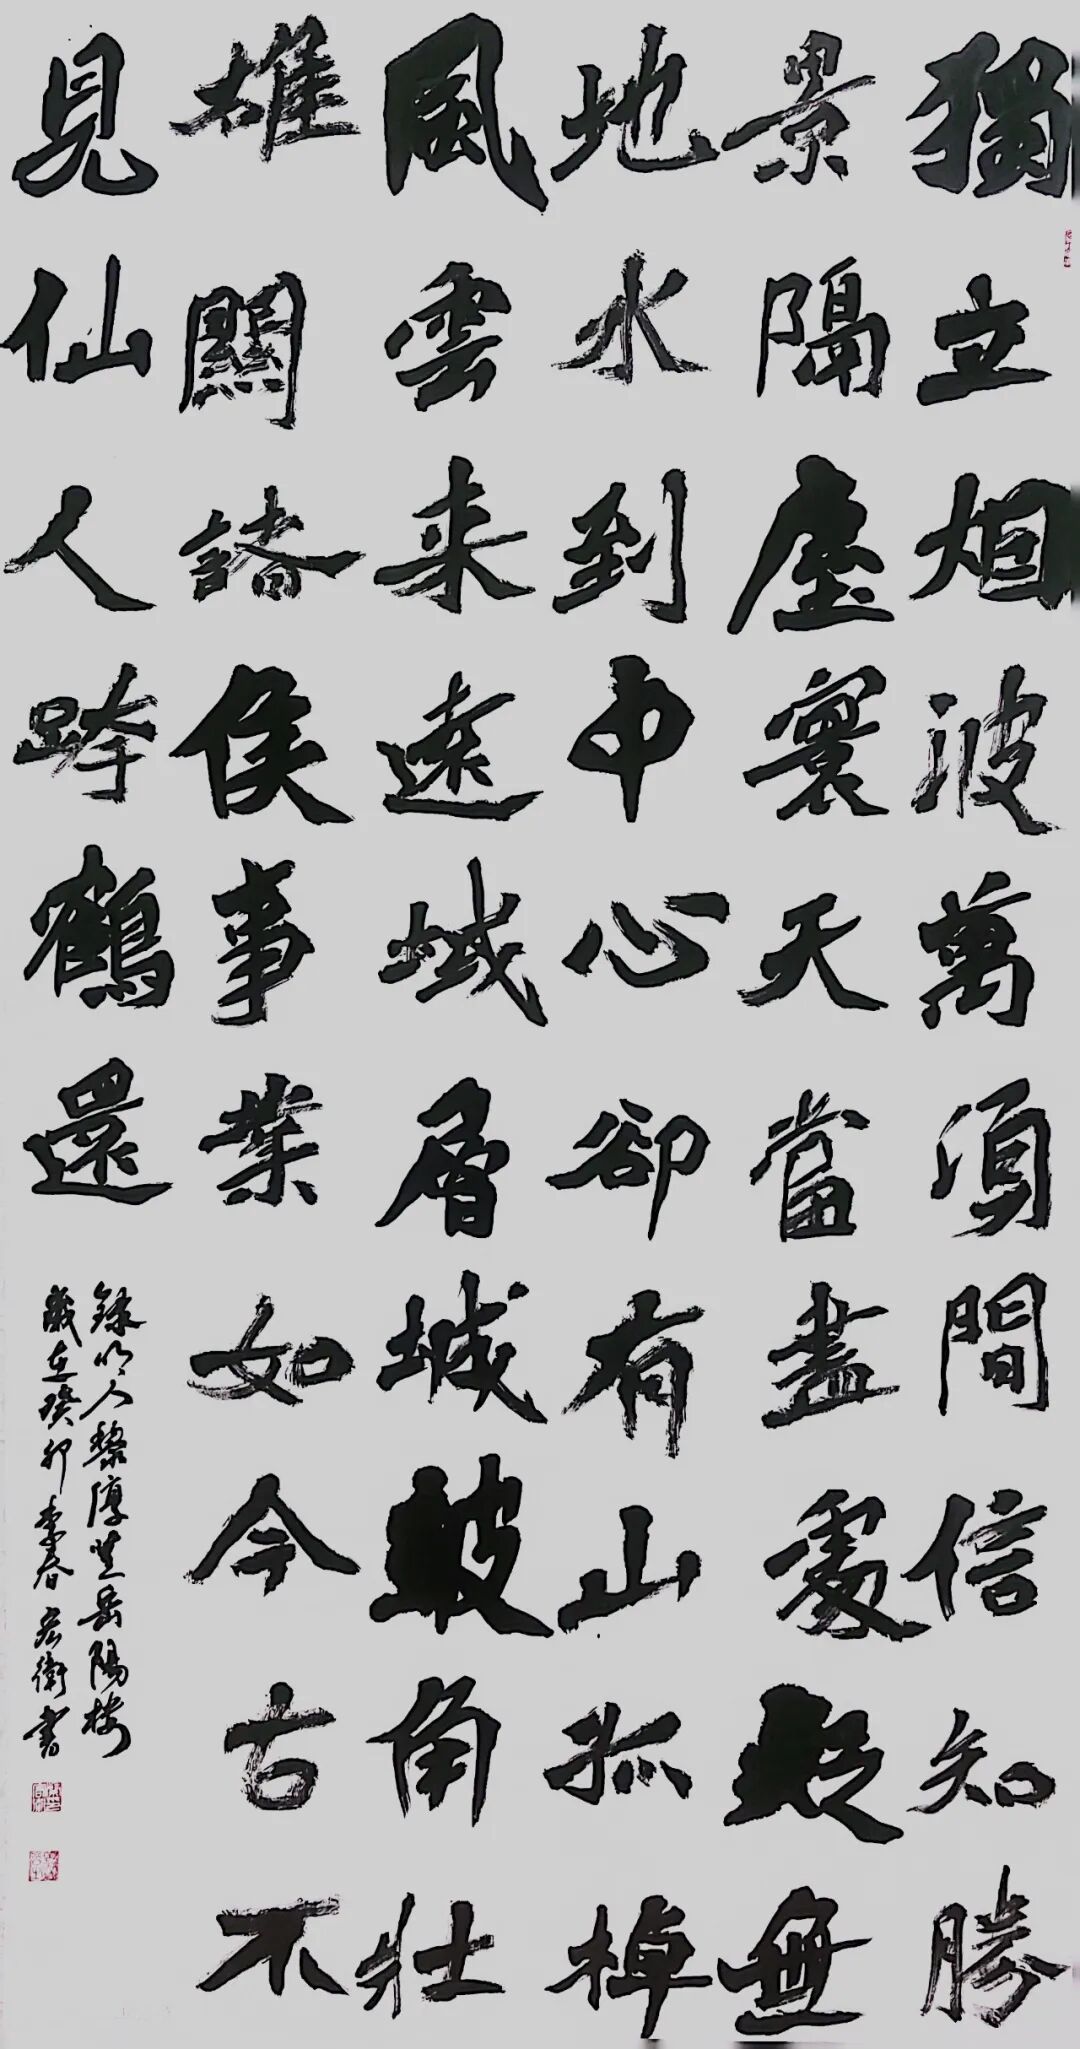 獨立烟波萬湏間信知勝
景隔塵寰天當盡處疑無
地水到中心卻有山孤棹
風雲来遠域層城鼓角壯
雄關諸侯事業如今古不
見仙人跨鶴還
錄明人黎淳登岳陽樓
歲在癸卯季春宏衛書